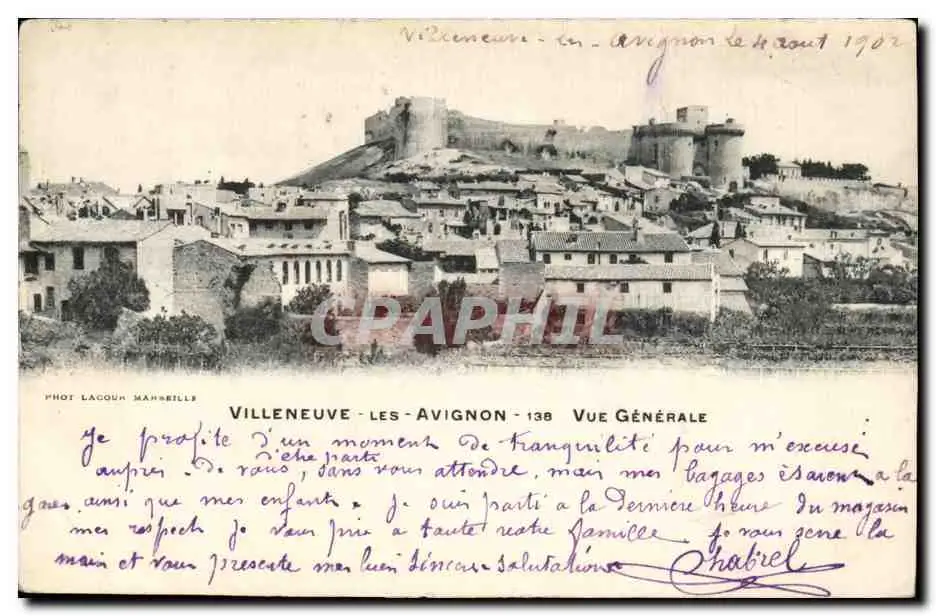 Villeneuve-les-Avignon le 4 aout 1902
CAPHIL
PHOT LACOUR MARSEILLE
VILLENEUVE - LES - AVIGNON - 138 VUE GÉNÉRALE
Je profite d'un moment de tranquilité pour m'excuse
d'etre parti
aupres de vous, sans vous attendre, mais mes bagages étaient a la
gare, ainsi que mes enfants. Je suis parti a la derniere heure du magasin
mes respects je vous prie a toute votre famille je vous serre la
main et vous presente mes bien sinceres salutations Chabrel